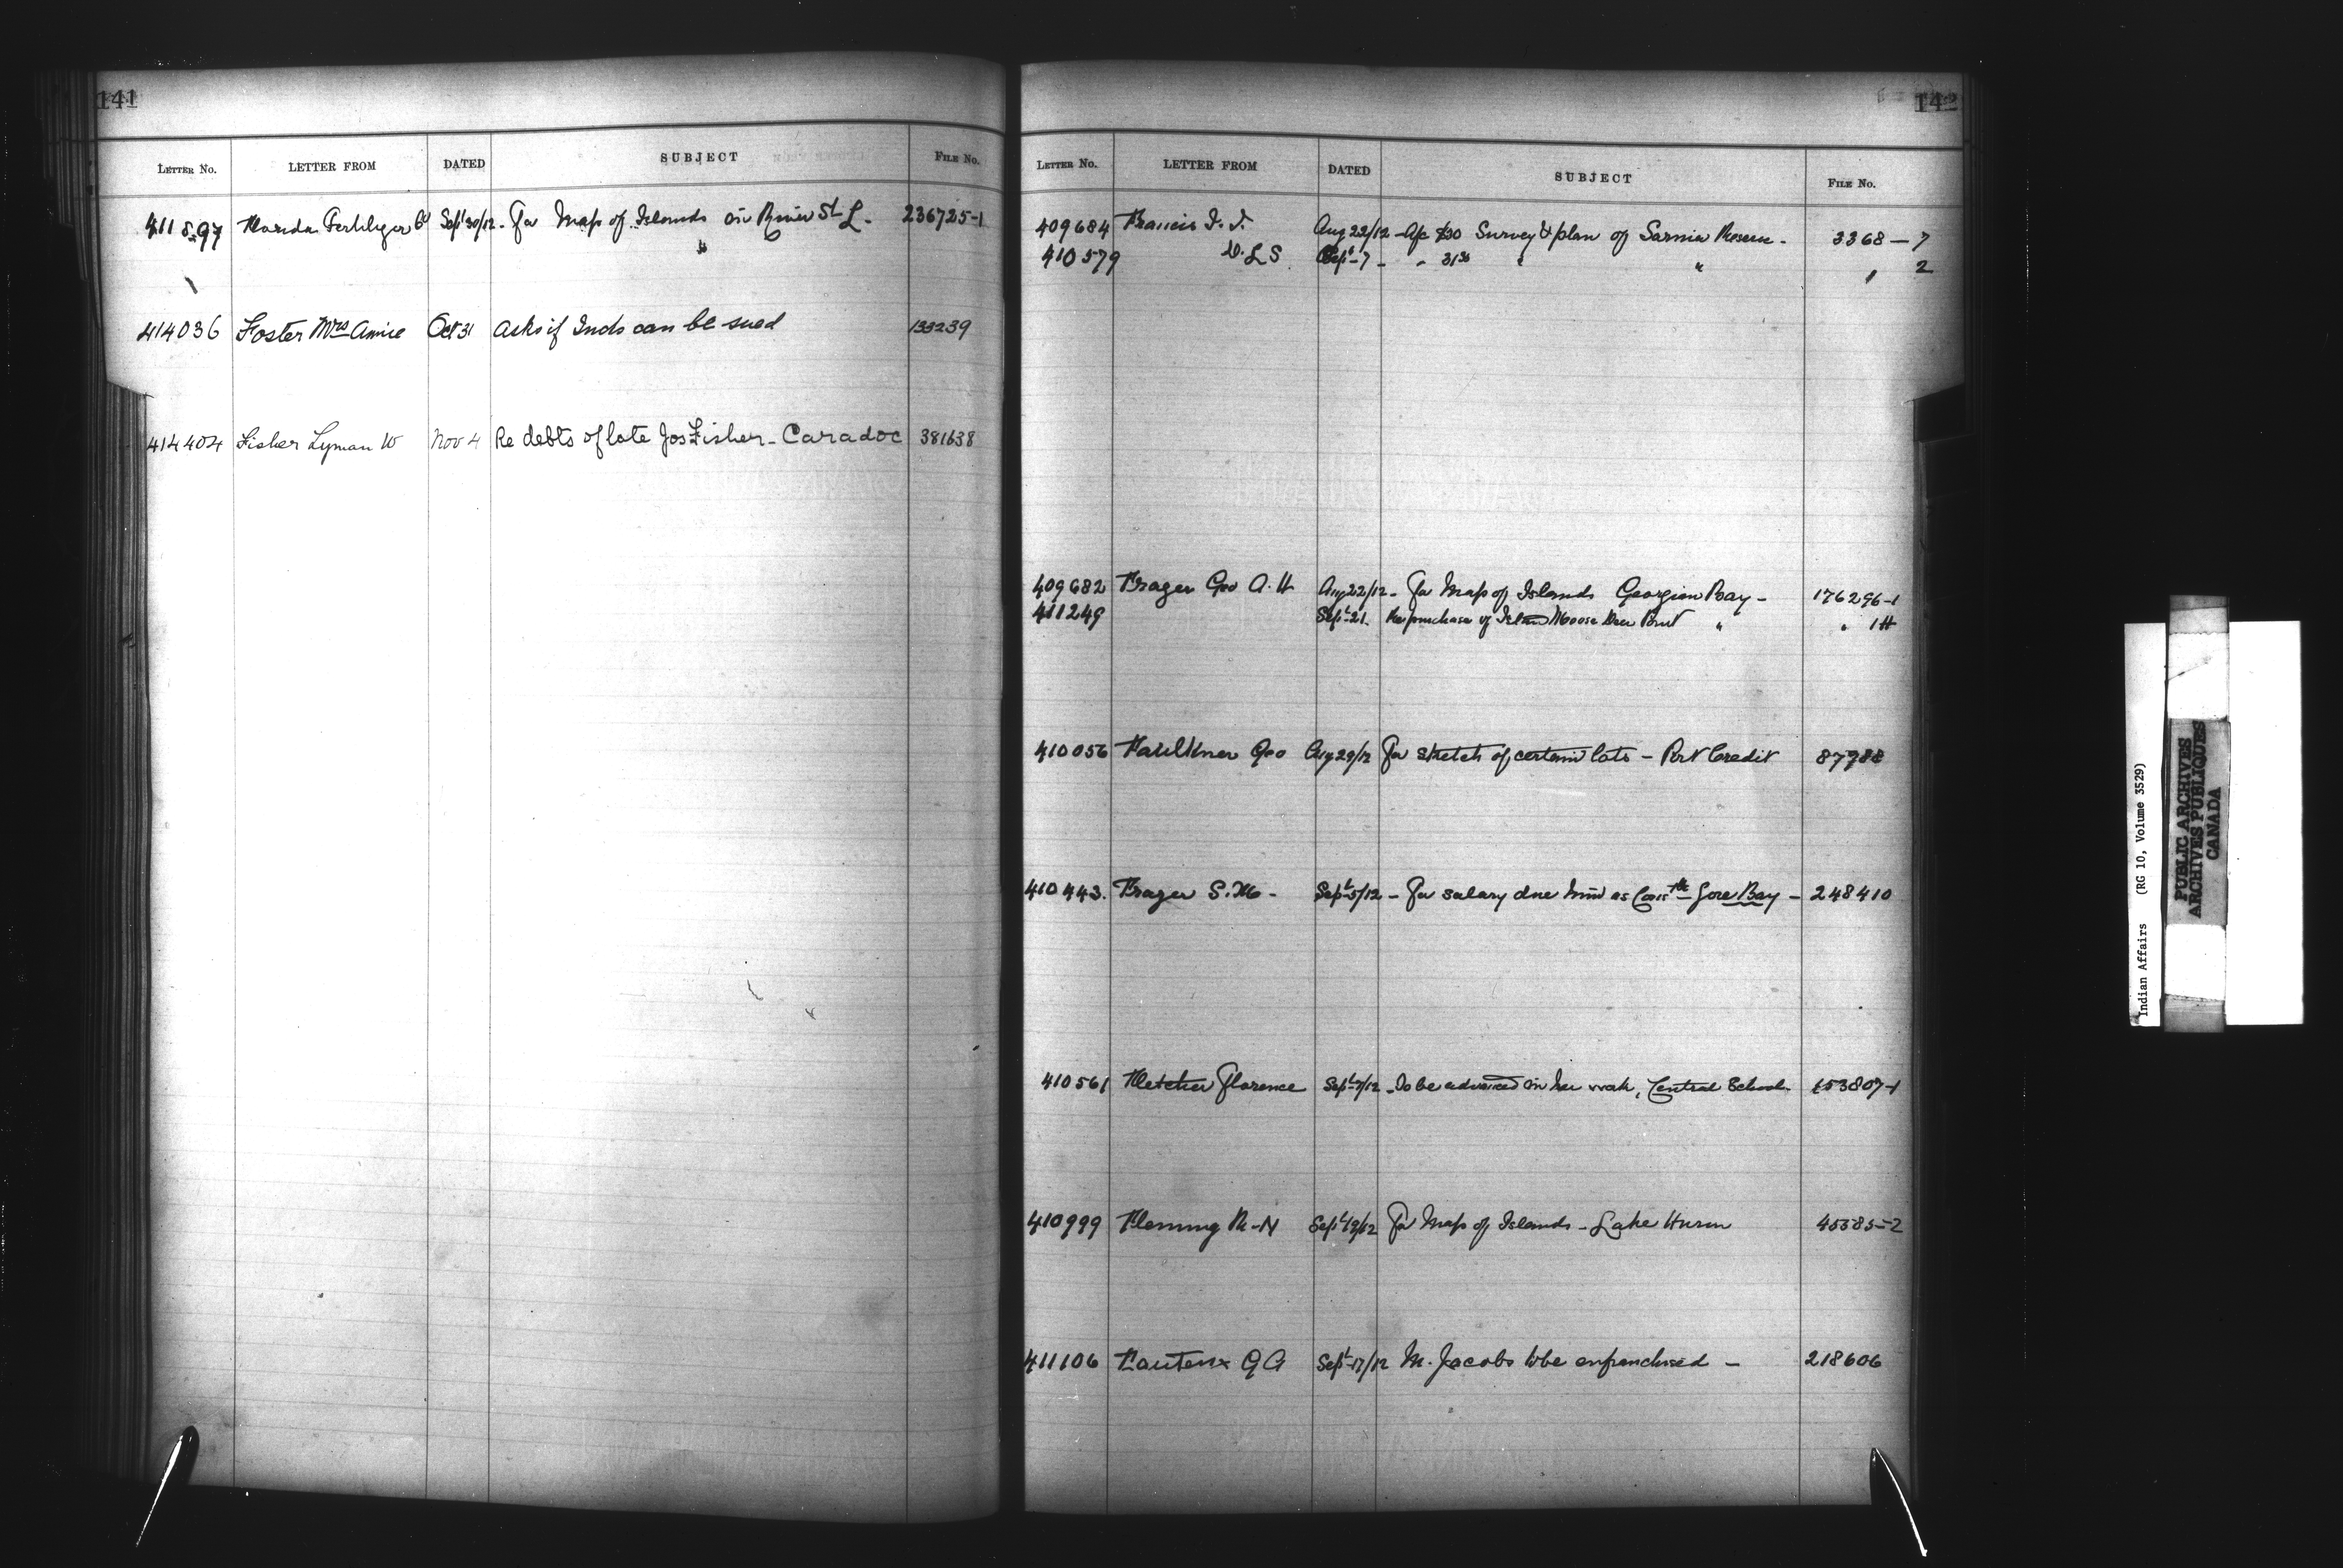 141
LETTER NO. LETTER FROM DATED SUBJECT FILE NO.
411897 Florida Fertilizer Co Sept 30/12 - For Map of Islands in River St L. 236725-1
"
414036 Foster Mrs Annie Oct 31 Asks if Inds can be sued 133239
414404 Fisher Lyman W Nov 4 Re debts of late Jos Fisher - Caradoc 381638
142
LETTER NO. LETTER FROM DATED SUBJECT FILE NO.
409684 Francis J. J. Aug 22/12 - A/c $30 Survey & plan of Sarnia Reserve - 3368-7
410579 D.L.S Sept-7 - " 31 " " " 2
409682 Frazer Geo A. H Aug 22/12 - For Map of Islands Georgian Bay - 176296-1
411249 Sept-21. Re purchase of Island Moose Deer Point " " 1H
410056 Faulkner Geo Aug 29/12 For sketch of certain lots - Port Credit 87988
410443. Frazer S. M - Sept-5/12 - For salary due him as Gore Bay - 248410
410561 Fletcher Florence Sept-7/12 - To be advanced in her work, Central School 153807-1
410999 Fleming R-N Sept 19/12 For Map of Islands - Lake Huron 45585-2
411106 Fauteux G A Sept-17/12 M. Jacobs to be enfranchised - 218606
Indian Affairs (RG 10, Volume 3529)
PUBLIC ARCHIVES
ARCHIVES PUBLIQUES
CANADA